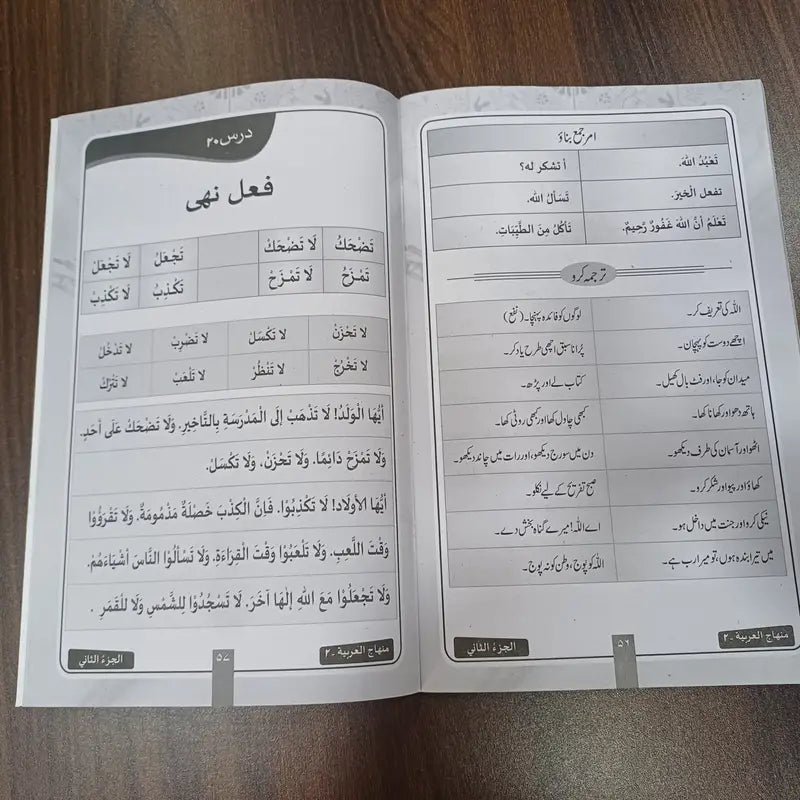 امر جمع بناؤ
تَعْبُدُ اللهَ. أ تشكر له؟
تفعل الْخيرَ. تَسْأَلُ الله.
تَعْلَمُ أَنَّ اللهَ غَفُورٌ رَّحِيمٌ. تَأكُلُ مِنَ الطَّيِّبَاتِ.
ترجمہ کرو
اللہ کی تعریف کر۔ لوگوں کو فائدہ پہنچا۔ (نفع)
اچھے دوست کو پہچان۔ پُرانا سبق اچھی طرح یاد کر۔
میدان کو جا، اور فٹ بال کھیل۔ کتاب لے اور پڑھ۔
ہاتھ دھو اور کھانا کھا۔ کبھی چاول کھا اور کبھی روٹی کھا۔
اٹھو اور آسمان کی طرف دیکھو۔ دن میں سورج دیکھو، اور رات میں چاند دیکھو۔
کھاؤ اور پیو اور شکر کرو۔ صبح تفریح کے لیے نکلو۔
نیکی کرو اور جنت میں داخل ہو۔ اے اللہ! میرے گناہ بخش دے۔
میں تیرا بندہ ہوں، تو میرا رب ہے۔ اللہ کو پوج، وطن کو نہ پوج۔
منهاج العربية -٢ ٥٦ الجزء الثاني
درس ٢٠
فعل نهى
تَضْحَكُ لَا تَضْحَكْ تَجْعَلُ لَا تَجْعَلْ
تَمْزَحُ لَا تَمْزَحْ تَكْذِبُ لَا تَكْذِبْ
لَا تَحْزَنْ لَا تَكْسَلْ لَا تَضْرِبْ لَا تَدْخُلْ
لَا تَخْرُجْ لَا تَنْظُرْ لَا تَلْعَبْ لَا تَتْرُكْ
أَيُّهَا الْوَلَدُ! لَا تَذْهَبْ إِلَى الْمَدْرَسَةِ بِالتَّاخِيرِ. وَلَا تَضْحَكْ عَلَى أَحَدٍ.
وَلَا تَمْزَحْ دَائِمًا. وَلَا تَحْزَنْ، وَلَا تَكْسَلْ.
أَيُّهَا الأَوْلَاد! لَا تَكْذِبُوْا. فَإِنَّ الْكِذْبَ خَصْلَةٌ مَذْمُومَةٌ. وَلَا تَقْرَؤُوْا
وَقْتَ اللَّعِبِ. وَلَا تَلْعَبُوْا وَقْتَ الْقِرَاءَةِ. وَلَا تَسْأَلُوْا النَّاسَ أَشْيَاءَهُمْ.
وَلَا تَجْعَلُوْا مَعَ اللهِ إِلٰهًا آخَرَ. لَا تَسْجُدُوْا لِلشَّمْسِ وَلَا لِلْقَمَرِ .
منهاج العربية -٢ ٥٧ الجزء الثاني